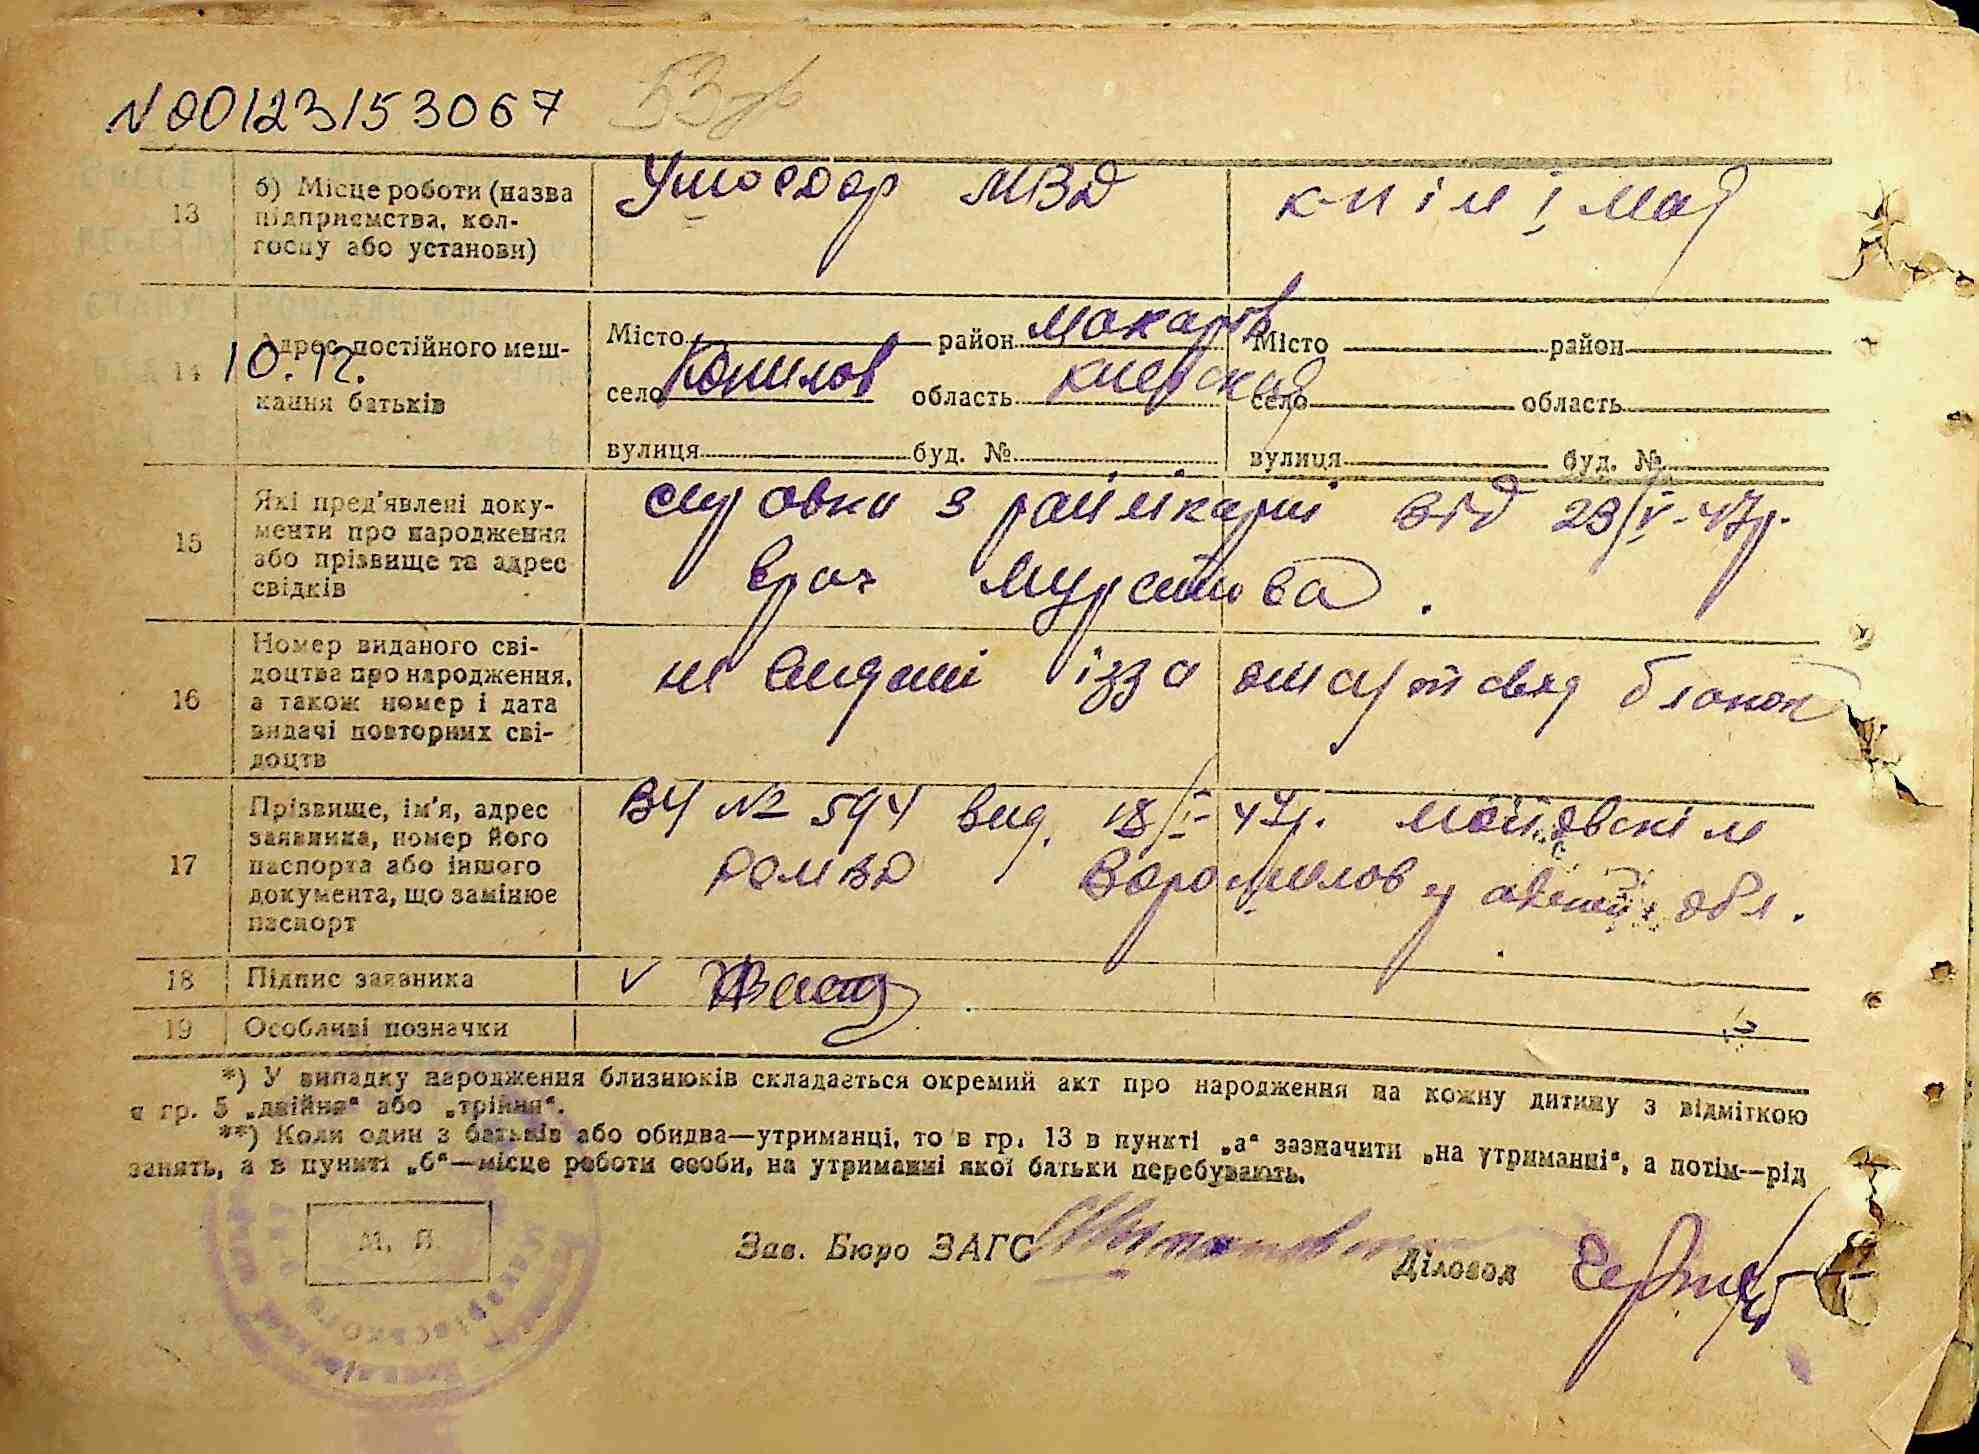 N 00123153067
13
б) Місце роботи (назва підприємства, кол-
госпу або установи)
Ушосдор МВД
14
Адрес постійного меш-
кання батьків
10.12.
Місто район Макарів
село Копилов область Киевская
вулиця буд. №
Місто район
село область
вулиця буд. №
15
Які пред'явлені доку-
менти про народження
або прізвище та адрес
свідків
справка з райлікарні від 23/V-47р.
врач
16
Номер виданого сві-
доцтва про народження,
а також номер і дата
видачі повторних сві-
доцтв
не видані ізза бланок
17
Прізвище, ім'я, адрес
заявника, номер його
паспорта або іншого
документа, що замінює
паспорт
ВЧ № 594 вид. 47р.
РОМВД обл.
18
Підпис заявника
V
19
Особливі позначки
*) У випадку народження близнюків складається окремий акт про народження на кожну дитину з відміткою
в гр. 5 „двійня“ або „трійня“.
**) Коли один з батьків або обидва—утриманці, то в гр. 13 в пункті „а“ зазначити „на утриманні“, а потім—рід
занять, а в пункті „б“—місце роботи особи, на утриманні якої батьки перебувають.
М. П.
Зав. Бюро ЗАГС
Діловод